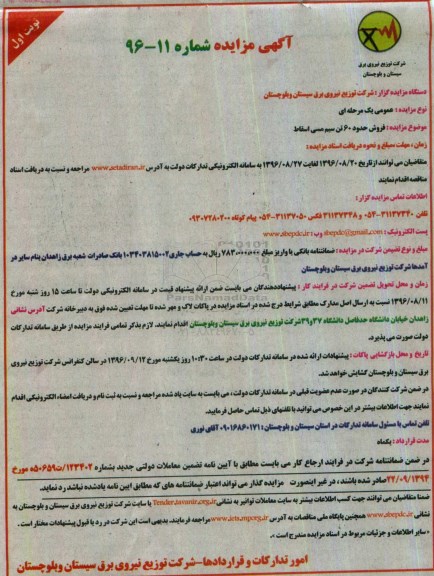 نوبت اول
شرکت توزیع نیروی برق
سیستان و بلوچستان
آگهی مزایده شماره ۱۱-۹۶
دستگاه مزایده گزار: شرکت توزیع نیروی برق سیستان وبلوچستان
نوع مزایده: عمومی یک مرحله ای
موضوع مزایده: فروش حدود ۶۰ تن سیم مسی اسقاط
زمان، مهلت،مبلغ و نحوه دریافت اسناد مزایده:
متقاضیان می توانند ازتاریخ ۱۳۹۶/۰۸/۲۰ لغایت ۱۳۹۶/۰۸/۲۷ به سامانه الکترونیکی تدارکات دولت به آدرس www.setadiran.ir مراجعه و نسبت به دریافت اسناد
مناقصه اقدام نمایند
اطلاعات تماس مزایده گزار:
تلفن ۳۱۱۳۷۳۴۰-۰۵۴ و ۳۱۱۳۷۳۴۸ فکس ۳۱۱۳۷۰۵۰-۰۵۴ پیام کوتاه ۹۳۰۷۲۸۰۲۰۰
پست الکترونیک: sbepdc@gmail.com وب: www.sbepdc.ir
مبلغ و نوع تضمین شرکت در مزایده: ضمانتنامه بانکی یا واریز مبلغ ریال به حساب جاری بانک صادرات شعبه برق زاهدان بنام سایر در
آمدها شرکت توزیع نیروی برق سیستان وبلوچستان
زمان و محل تحویل تضمین شرکت در فرایند کار: پیشنهاددهندگان می بایست ضمن ارائه پیشنهاد قیمت در سامانه الکترونیکی دولت تا ساعت ۱۵ روز شنبه مورخ
نسبت به ارسال اصل مدارک مطابق شرایط درج شده در اسناد مزایده در پاکات لاک و مهر شده تا مهلت تعیین شده فوق به دبیرخانه شرکت آدرس نشانی
زاهدان خیابان دانشگاه حدفاصل دانشگاه ۳۷و۳۹شرکت توزیع نیروی برق سیستان وبلوچستان اقدام نمایند. لازم بذکر تمامی فرایند مزایده از طریق سامانه تدارکات
دولت صورت می پذیرد.
تاریخ و محل بازگشایی پاکات: پیشنهادات ارائه شده در سامانه تدارکات دولت در ساعت ۱۰:۳۰ روز یکشنبه مورخ ۱۳۹۶/۰۹/۱۲ در سالن کنفرانس شرکت توزیع نیروی
برق سیستان وبلوچستان گشایش خواهد شد.
در ضمن شرکت کنندگان در صورت عدم عضویت قبلی در سامانه تدارکات دولت، می بایست به سایت یاد شده مراجعه و نسبت به ثبت نام و دریافت امضاء الکترونیکی اقدام
نمایند جهت اطلاعات بیشتر در این خصوص می توانید با تلفنهای ذیل تماس حاصل فرمایید.
تلفن تماس با مسئول سامانه تدارکات در استان سیستان و بلوچستان: ۰۹۰۱۶۸۶۰۱۷۱ آقای نوری
مدت قرارداد: یکماه
در ضمن ضمانتنامه شرکت در فرایند ارجاع کار می بایست مطابق با آیین نامه تضمین معاملات دولتی جدید بشماره ۱۲۳۴۰۲/ت۵۰۶۵۹ه مورخ
۲۲/۰۹/۱۳۹۴ صادر شده باشند، در غیر اینصورت مزایده گذار می تواند اعتبار ضمانتنامه های که مطابق ایین نامه یادشده نباشد رد نماید.
ضمنا متقاضیان می توانند جهت کسب اطلاعات بیشتر به سایت معاملات توانیر به نشانی Tender.tavanir.org.ir یا سایت شرکت توزیع نیروی برق سیستان و بلوچستان به
نشانی www.sbepdc.ir همچنین پایگاه ملی مناقصات به آدرس www.iets.mporg.ir مراجعه فرمایند. بدیهی است این شرکت در رد یا قبول پیشنهادات مختار است.
«سایر اطلاعات و جزئیات مربوط در اسناد مزایده مندرج است.»
امور تدارکات و قراردادها-شرکت توزیع نیروی برق سیستان وبلوچستان
ParsNamadData